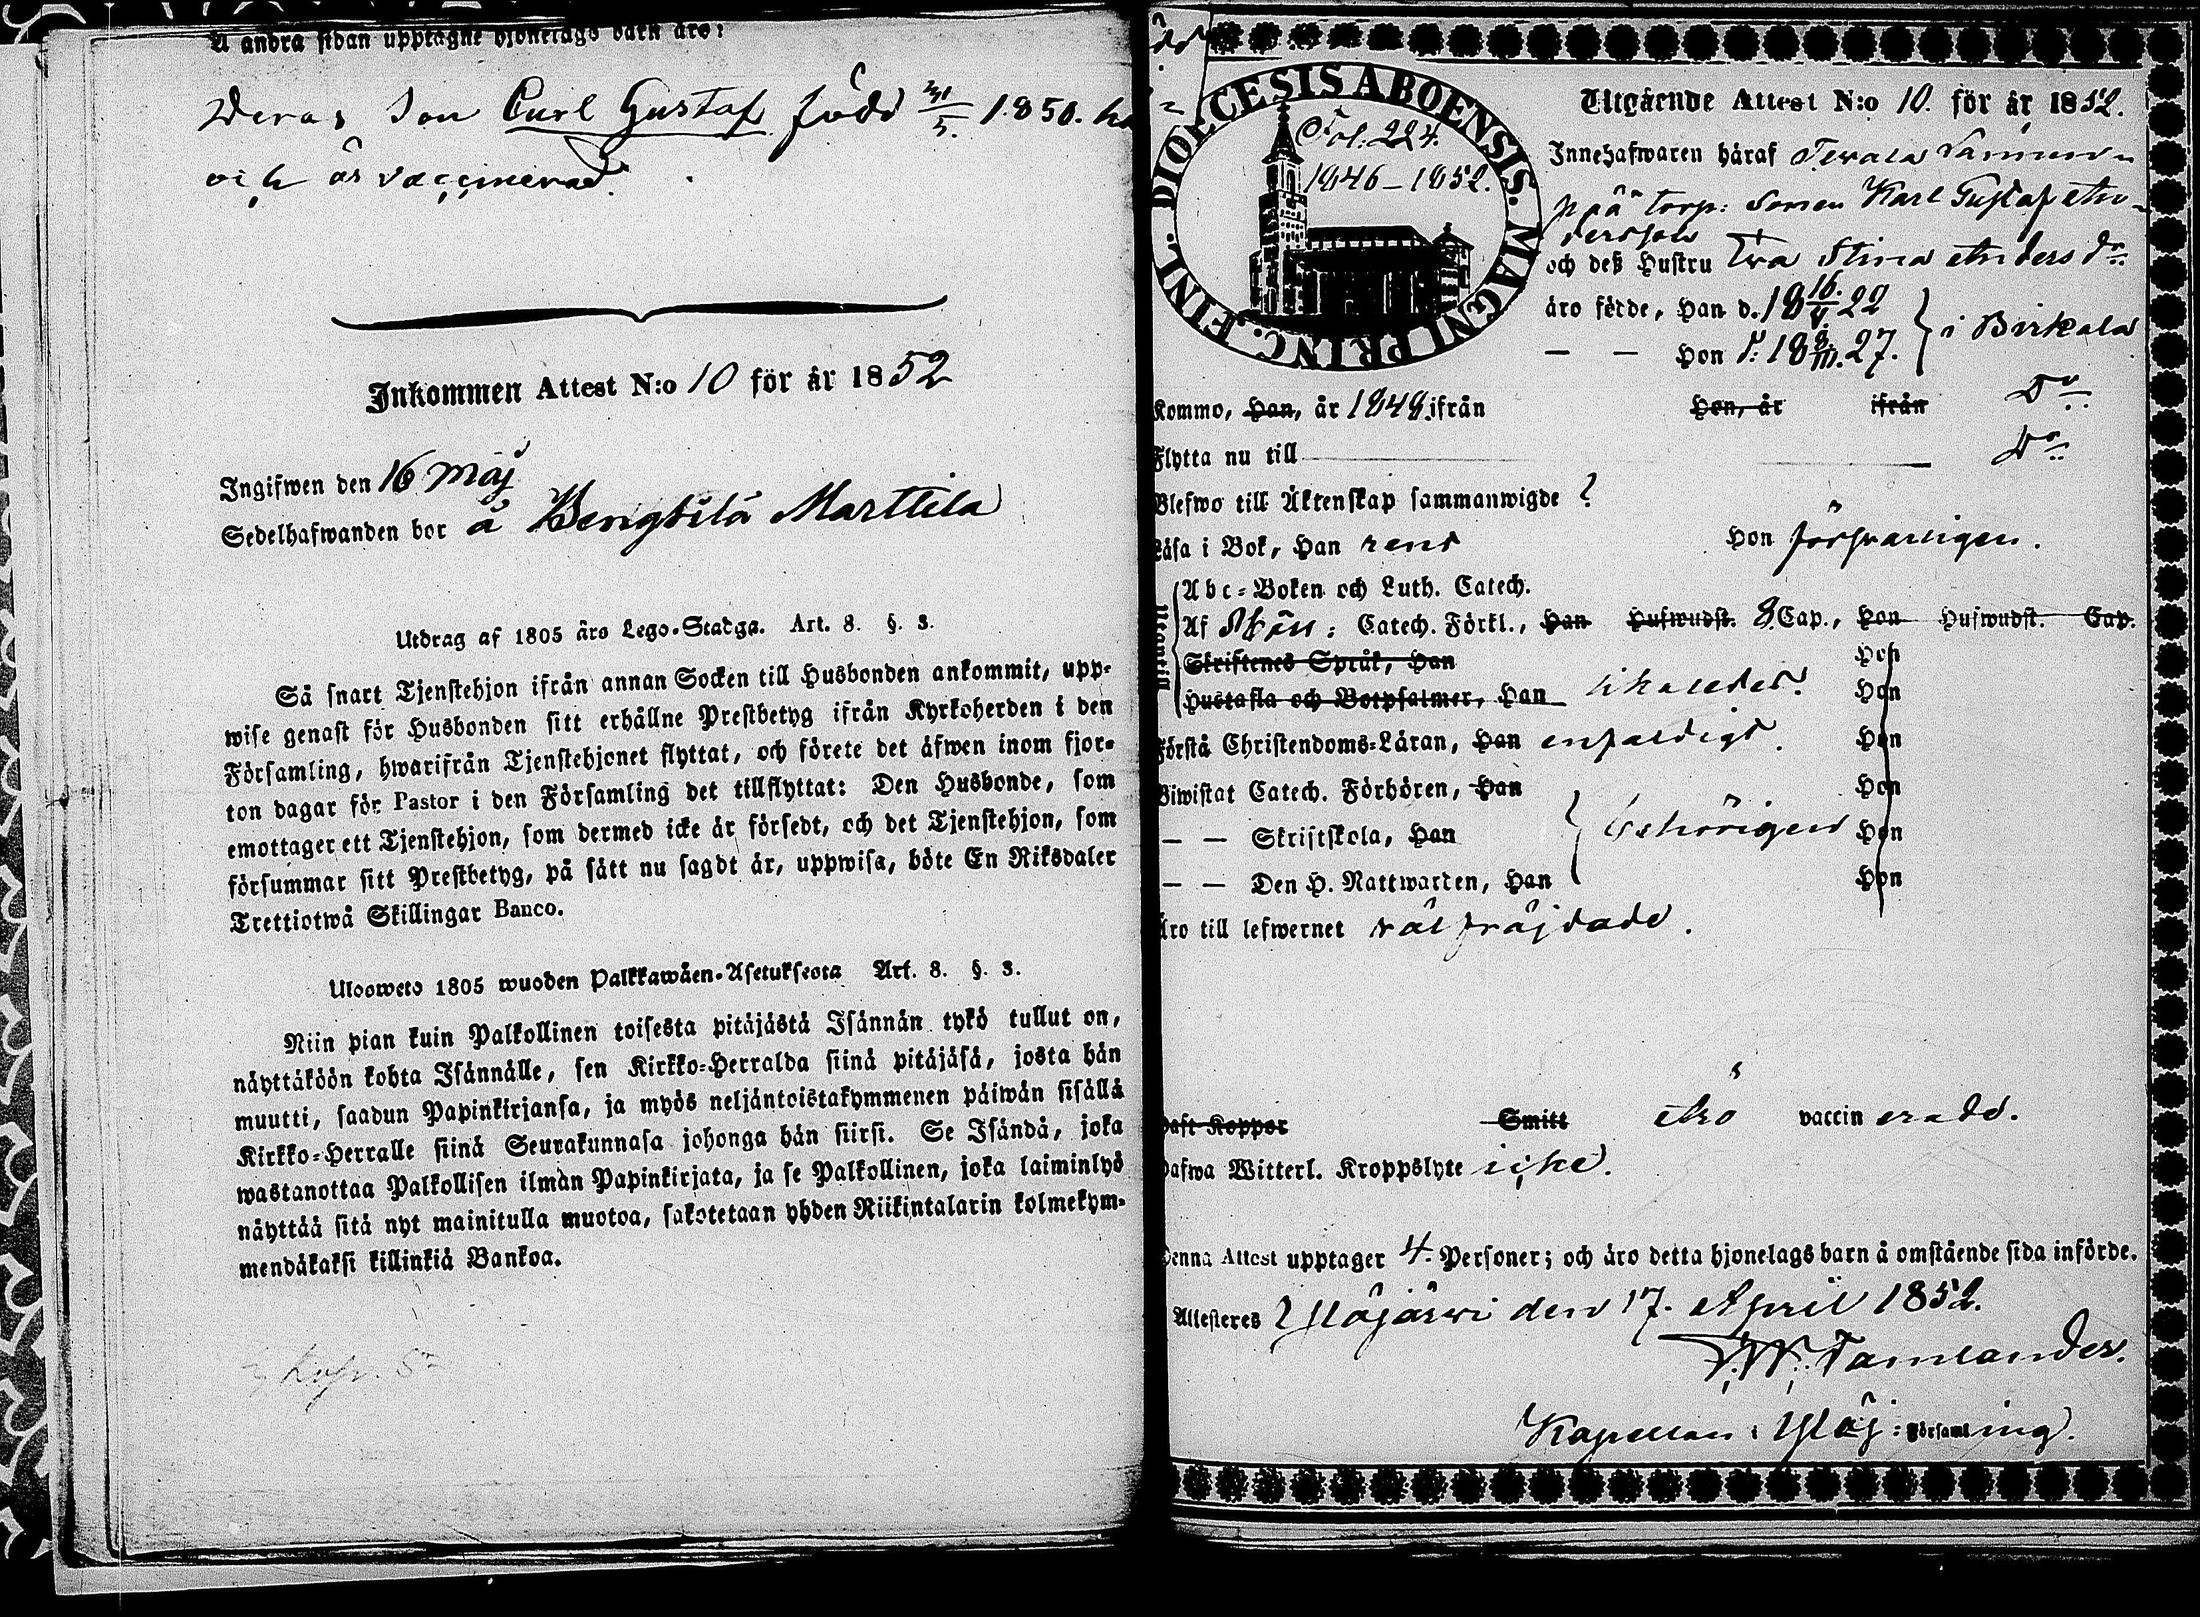 Å andra sidan upptagne hjonelags barn äro:
Deras Son Carl Gustaf född 31/5. 1850.
och är vaccinerad.
Inkommen Attest N:o 10 för år 1852
Ingifwen den 16 Maj
Sedelhafwanden bor å Bengtilä Marttila
Utdrag af 1805 års Lego-Stadga. Art. 8. §. 3.
Så snart Tjenstehjon ifrån annan Socken till Husbonden ankommit, upp-
wise genast för Husbonden sitt erhållne Prestbetyg ifrån Kyrkoherden i den
Församling, hwarifrån Tjenstehjonet flyttat, och förete det äfwen inom fjor-
ton dagar för Pastor i den Församling det tillflyttat: Den Husbonde, som
emottager ett Tjenstehjon, som dermed icke är försedt, och det Tjenstehjon, som
försummar sitt Prestbetyg, på sätt nu sagdt är, uppwisa, böte En Riksdaler
Trettiotwå Skillingar Banco.
Ulosweto 1805 wuoden Palkkawäen-Asetuksesta Art. 8. §. 3.
Niin pian kuin Palkollinen toisesta pitäjästä Isännän tykö tullut on,
näyttäköön kohta Isännälle, sen Kirkko-Herralda siinä pitäjäsä, josta hän
muutti, saadun Papinkirjansa, ja myös neljäntoistakymmenen päiwän sisällä
Kirkko-Herralle siinä Seurakunnasa johonga hän siirsi. Se Isändä, joka
wastanottaa Palkollisen ilman Papinkirjata, ja se Palkollinen, joka laiminlyö
näyttää sitä nyt mainitulla muotoa, sakotetaan yhden Riikintalarin kolmekym-
mendäkaksi killinkiä Bankoa.
DIOECESIS ABOENSIS. MAGNI PRINC. FINL.
Fol: 224.
1846–1852.
Utgående Attest N:o 10. för år 1852.
Innehafwaren häraf
på torp: Sonen Karl Gustaf An-
dersson
och deß Hustru Ewa Stina Anders dr
äro födde, Han d. 18 16/V 22
— — Hon d: 18 8/III. 27. } i Birkala
Kommo, Han, år 1848 ifrån Hon, år ifrån Do
Flytta nu till Do
Blefwo till Äktenskap sammanwigde ?
Läsa i Bok, Han rent Hon försvarligen.
Abc-Boken och Luth. Catech.
Af Catech. Förkl., Han Hufwudst. 8. Cap., Hon Hufwudst. Cap.
Skriftenes Språk, Han Hon
Hustafla och Botpsalmer, Han likaledes. Hon
Förstå Christendoms-Läran, Han enfaldigt. Hon
Biwistat Catech. Förhören, Han Hon
— — Skriftskola, Han behörigen Hon
— — Den H. Nattwarden, Han Hon
Äro till lefwernet väl fräjdade.
Haft Koppor Smitt Äro vaccinerade.
Hafwa Witterl. Kroppslyte icke.
Denna Attest upptager 4 Personer; och äro detta hjonelags barn å omstående sida införde.
Attesteres Ylöjärwi den 17. April 1852.
Tamlander.
Kapellan i Ylöj: Församling.